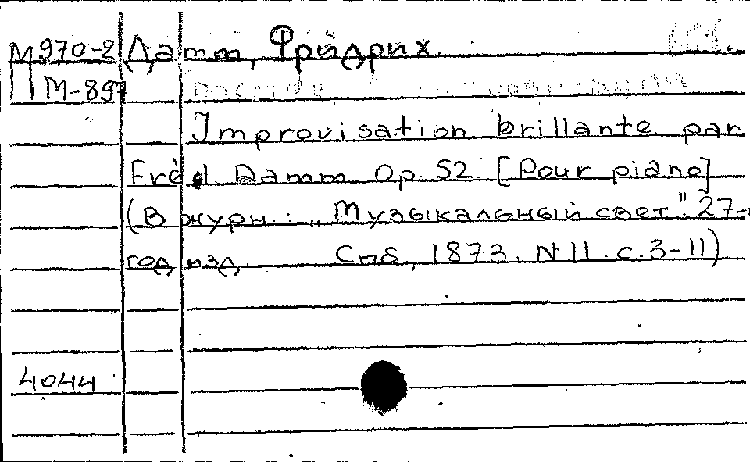 М970-2 Дамм, Фридрих.
М-897
Improvisation brillante par
Fréd Damm Op. 52 [Pour piano]
(В журн.: „Музыкальный свет". 27-
год изд. Спб, 1873. N 11. с. 3-11)
4044